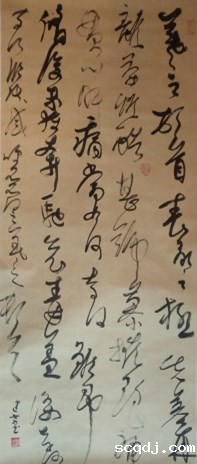 羲之頓首喪亂之極先墓再
離荼毒追惟酷甚號慕摧絕痛
貫心肝痛當奈何奈何雖即
脩復未獲奔馳哀毒益深奈何
臨紙感哽不知何言羲之頓首
scqdj.com